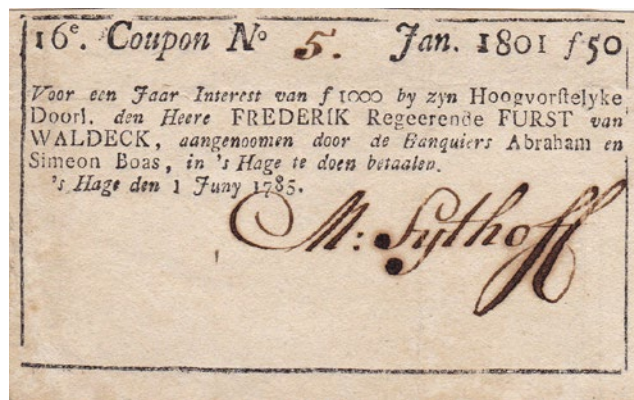 16e. Coupon No 5. Jan. 1801 f 50
Voor een Jaar Interest van f 1000 by zyn Hoogvorstelyke
Doorl. den Heere FREDERIK Regeerende FURST van
WALDECK, aangenoomen door de Banquiers Abraham en
Simeon Boas, in 's Hage te doen betaalen.
's Hage den 1 Juny 1785.
M: Sythoff